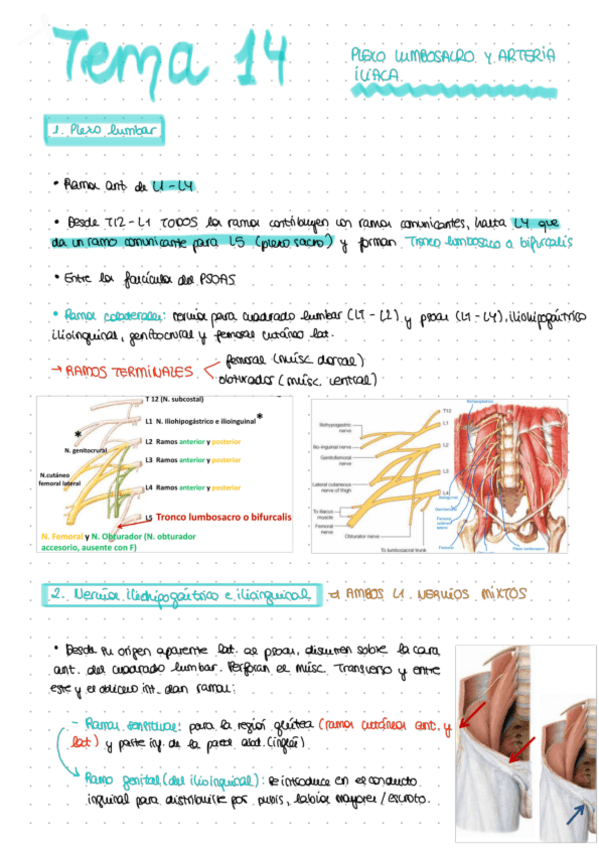 Tema 14
PLEXO LUMBOSACRO Y ARTERIA
ILÍACA
1. Plexo lumbar
• Ramos ant. de L1-L4
• Desde T12-L1 TODOS los ramos contribuyen con ramos comunicantes, hasta L4 que
da un ramo comunicante para L5 (plexo sacro) y forman Tronco lumbosacro o bifurcalis
• Entre los fascículos del PSOAS
• Ramos colaterales: nervios para cuadrado lumbar (L1-L2) y psoas (L1-L4), iliohipogástrico
ilioinguinal, genitocrural y femoral cutáneo lat.
→ RAMOS TERMINALES
femoral (músc. dorsal)
obturador (músc. ventral)
T 12 (N. subcostal)
L1 N. Iliohipogástrico e ilioinguinal *
*
L2 Ramos anterior y posterior
N. genitocrural
L3 Ramos anterior y posterior
N.cutáneo
femoral lateral
L4 Ramos anterior y posterior
L5 Tronco lumbosacro o bifurcalis
N. Femoral y N. Obturador (N. obturador
accesorio, ausente con F)
T12
L1
Iliohypogastric
nerve
Ilio-inguinal nerve
L2
Genitofemoral
nerve
L3
Lateral cutaneous
nerve of thigh
L4
To iliacus
muscle
Femoral
nerve
Obturator nerve
To lumbosacral trunk
2. Nervios iliohipogástrico e ilioinguinal → AMBOS L1. NERVIOS MIXTOS
• Desde su origen aparente lat. al psoas, discurren sobre la cara
ant. del cuadrado lumbar. Perforan el músc. Transverso y entre
este y el oblicuo int. dan ramos:
- Ramos sensitivos: para la región glútea (ramos cutáneos ant. y
lat) y parte inf. de la pared abd. (ingle)
Ramo genital (del ilioinguinal): se introduce en el conducto
inguinal para distribuirse por pubis, labios mayores/escroto.